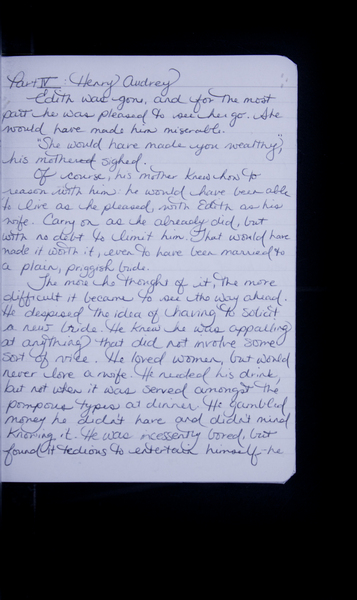 Part IV: Henry Audrey
Edith was gone, and for the most
part he was pleased to see her go. She
would have made him miserable.
"She would have made you wealthy,"
his mother sighed.
Of course, his mother knew how to
reason with him: he would have been able
to live as he pleased, with Edith as his
wife. Carry on as he already did, but
with no debt to limit him. That would have
made it worth it, even to have been married to
a plain, priggish bride.
The more he thought of it, the more
difficult it became to see the way ahead.
He despised the idea of having to solicit
a new bride. He knew he was appalling
at anything that did not involve some
sort of vice. He loved women, but would
never love a wife. He needed his drink,
but not when it was served amongst the
pompous types at dinner. He gambled
money he didn't have and didn't mind
knowing it. He was incessently bored, but
found it tedious to entertain himself. He